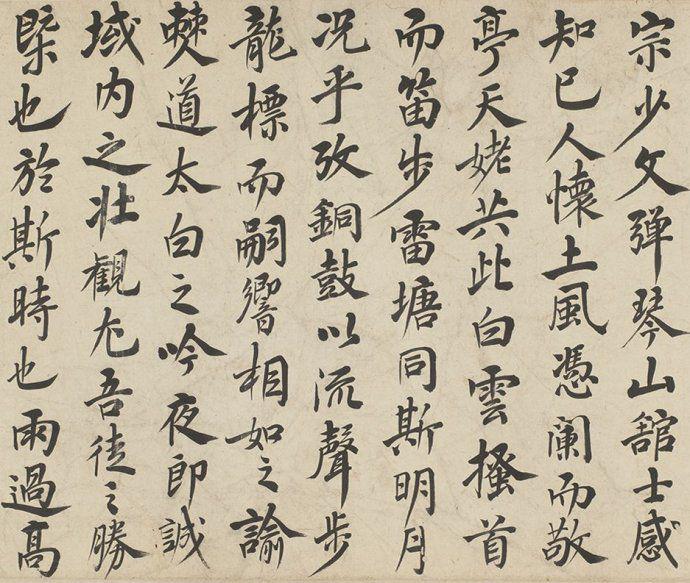 宗少文彈琴山舘士感
知己人懷土風憑闌而敬
亭天姥共此白雲搔首
而笛步雷塘同斯明月
况乎攷銅鼓以流聲步
龍標而嗣響相如之諭
僰道太白之吟夜郎誠
域内之壯觀尤吾徒之勝
槩也於斯時也雨過高